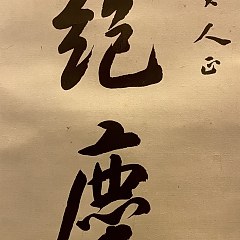 人正
絶塵